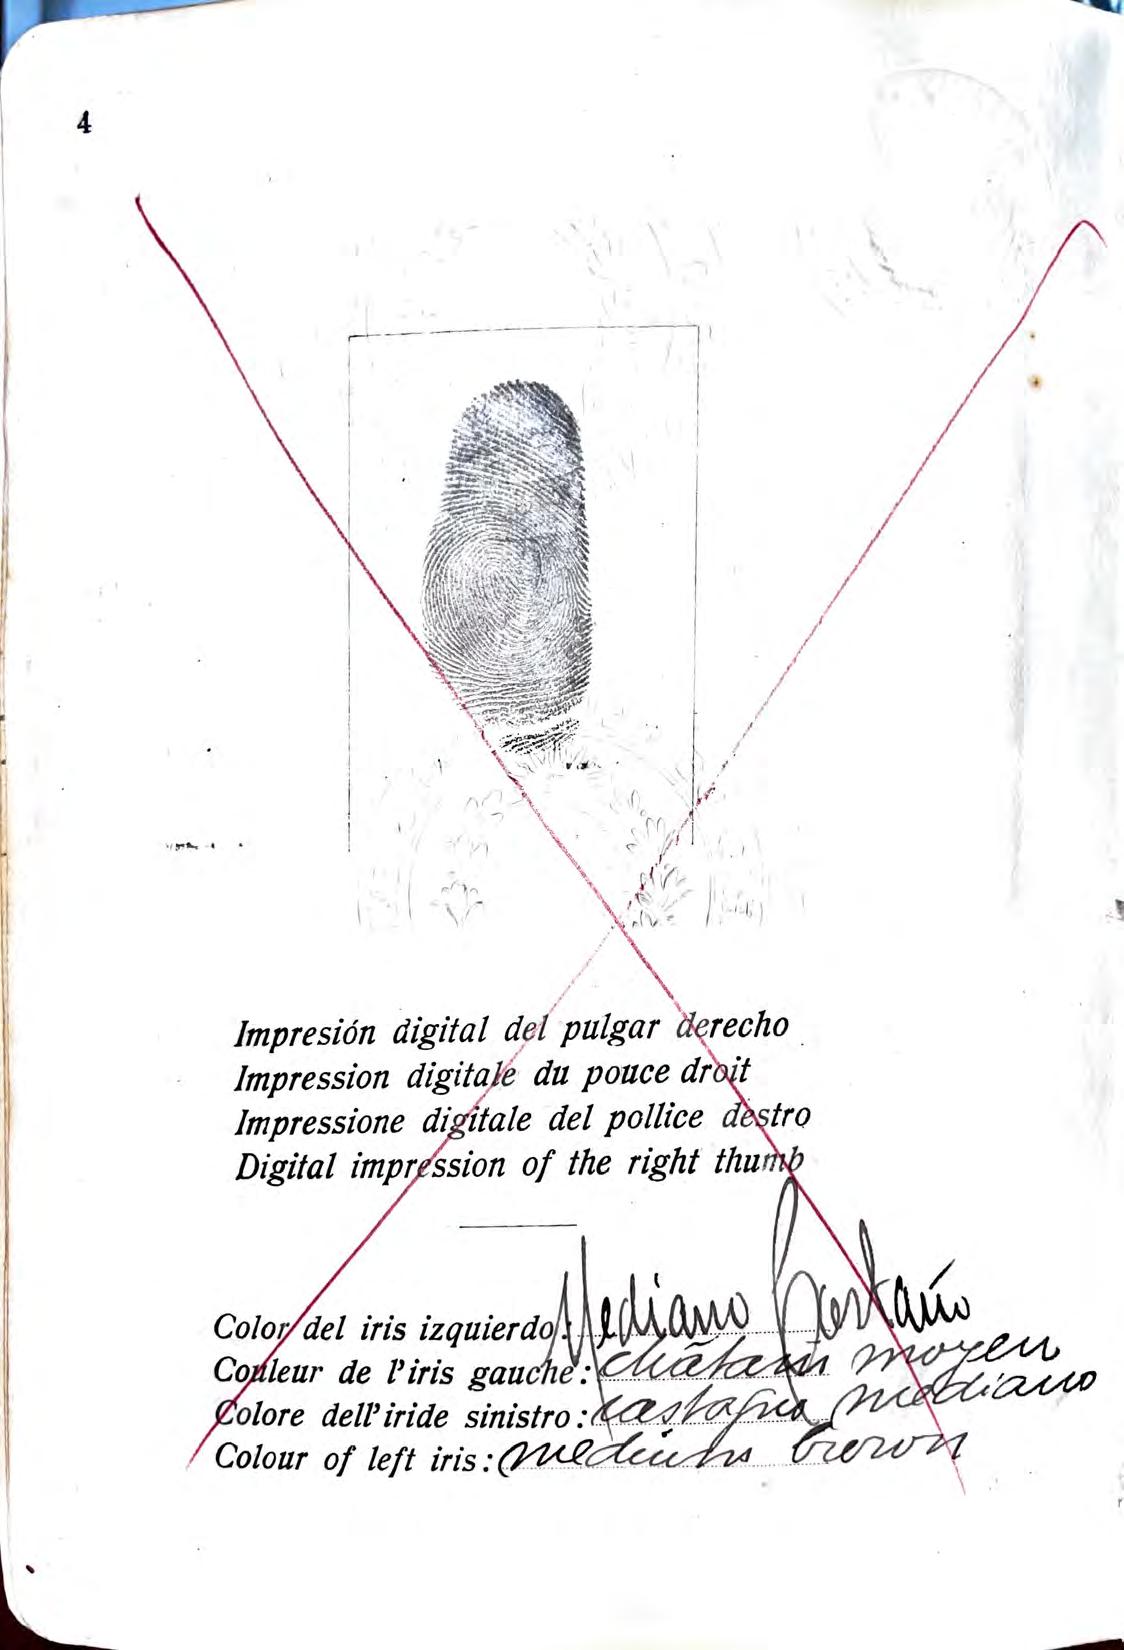 4
Impresión digital del pulgar derecho
Impression digitale du pouce droit
Impressione digitale del pollice destro
Digital impression of the right thumb
Color del iris izquierdo: Mediano Castaño
Couleur de l'iris gauche: châtain moyen
Colore dell'iride sinistro: castagno mediano
Colour of left iris: medium brown